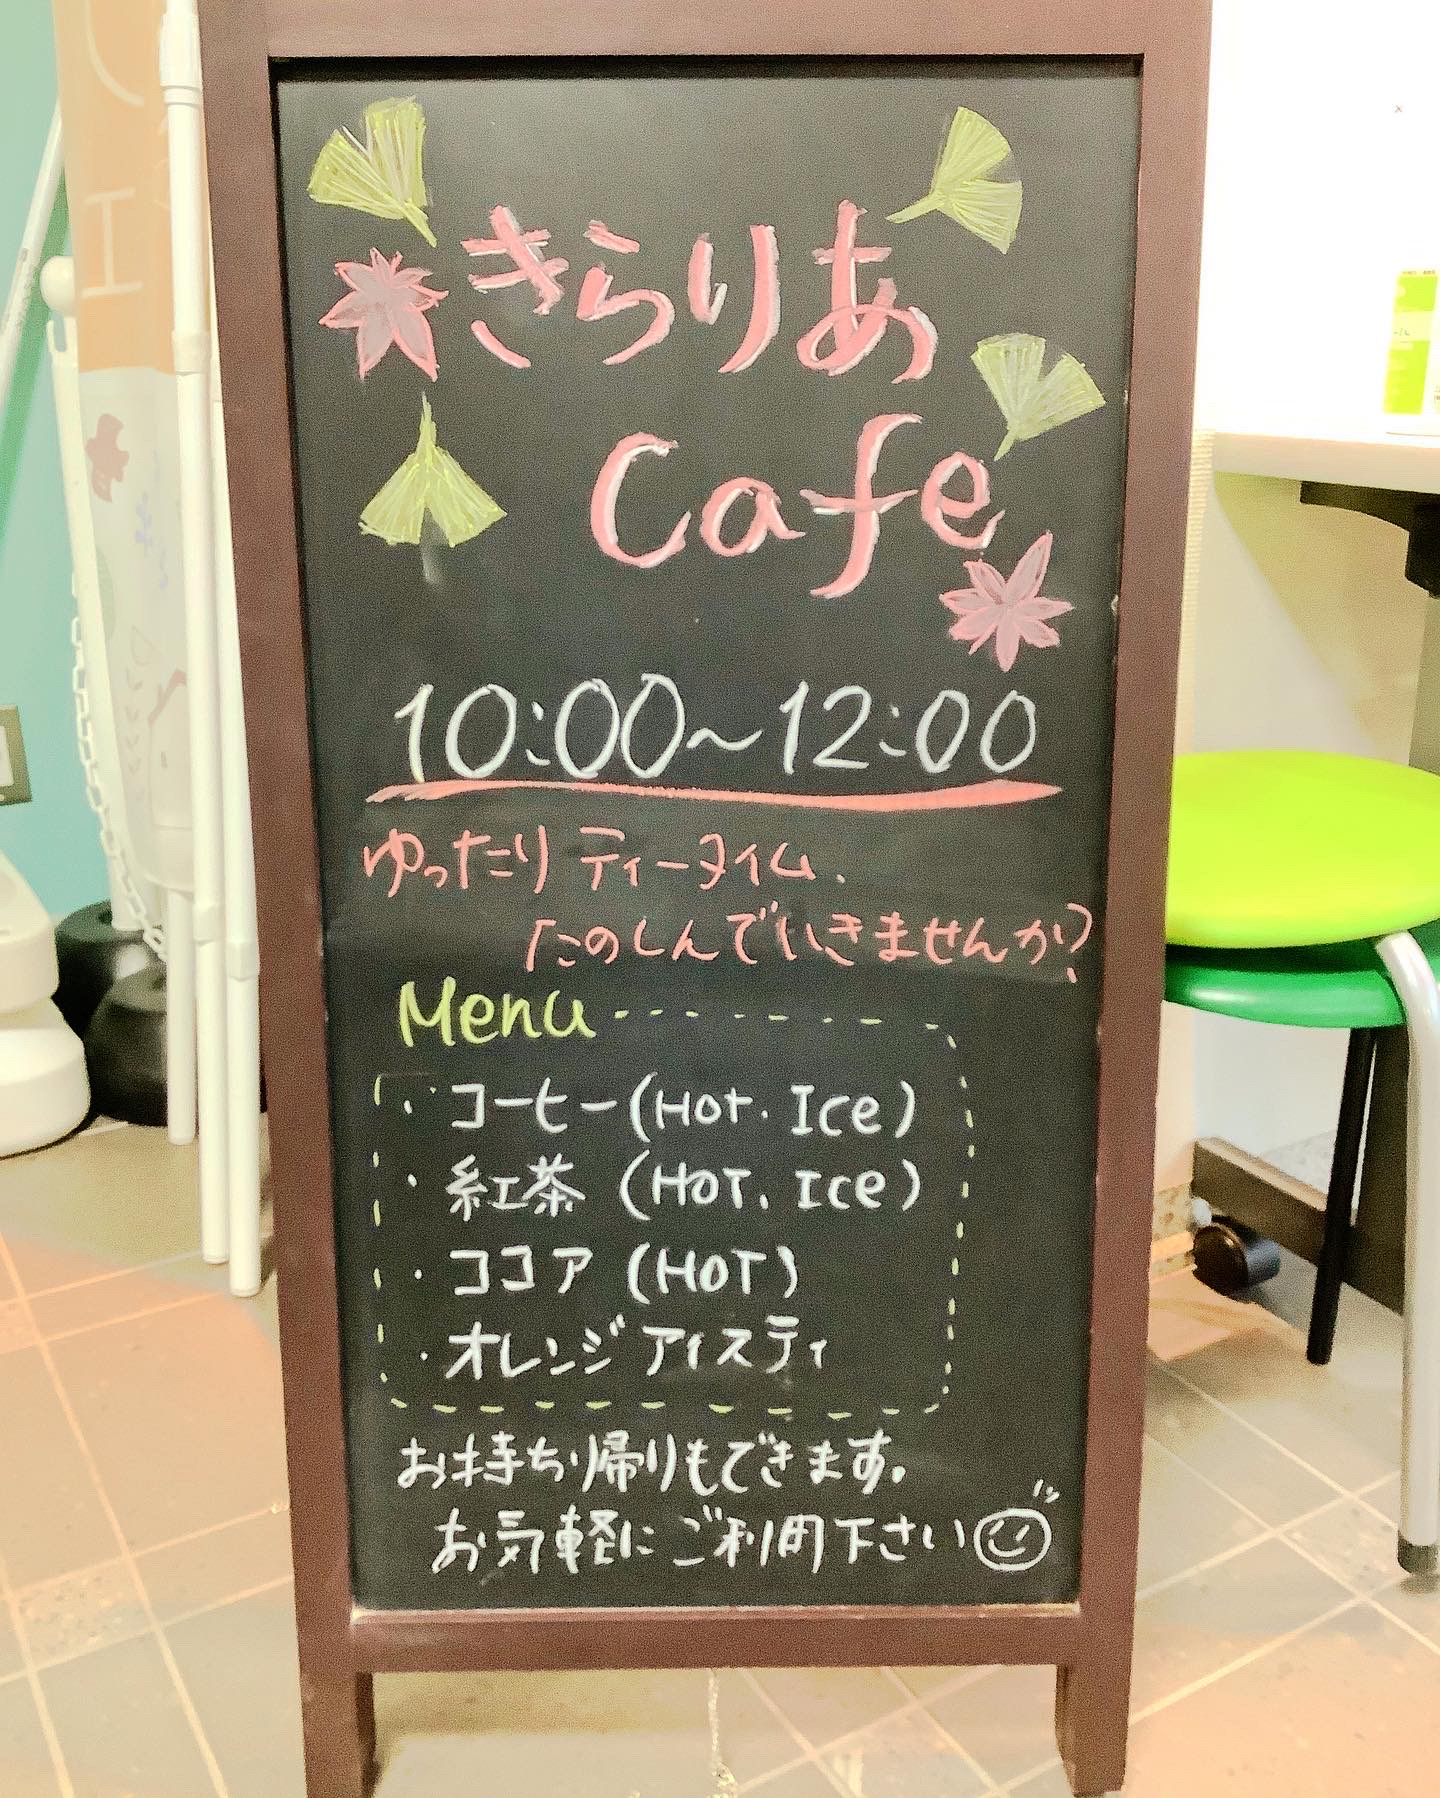 きらりあ
Cafe
10:00～12:00
ゆったり ティータイム、
たのしんでいきませんか?
Menu
・コーヒー(HOT. Ice)
・紅茶 (HOT. Ice)
・ココア (HOT)
・オレンジアイスティ
お持ち帰りもできます。
お気軽に ご利用下さい